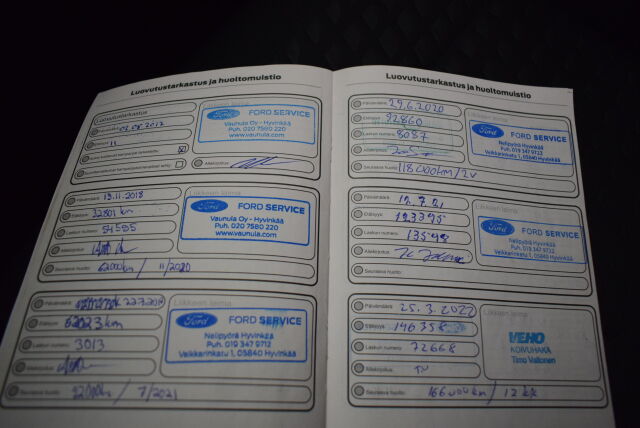 Luovutustarkastus ja huoltomuistio
Luovutustarkastus
11
Liikkeen leima
Ford FORD SERVICE
Vaunula Oy - Hyvinkää
Puh. 020 7580 220
www.vaunula.com
Allekirjoitus
Päivämäärä 19.11.2018
Ajokm 32801 km
Laskun numero 54585
Allekirjoitus
Seuraava huolto 62000km / 11/2020
Liikkeen leima
Ford FORD SERVICE
Vaunula Oy - Hyvinkää
Puh. 020 7580 220
www.vaunula.com
Päivämäärä
62023 km
Laskun numero 3013
Allekirjoitus
Seuraava huolto 92000km / 7/2021
Liikkeen leima
Ford FORD SERVICE
Nelipyörä Hyvinkää
Puh. 019 347 9712
Veikkarinkatu 1, 05840 Hyvinkää
Luovutustarkastus ja huoltomuistio
Päivämäärä 29.6.2020
92860
Laskun numero 8087
Allekirjoitus
Seuraava huolto 118000km / 2v
Ford FORD SERVICE
Nelipyörä Hyvinkää
Puh. 019 347 9712
Veikkarinkatu 1, 05840 Hyvinkää
Päivämäärä 12.7.21
123395
Laskun numero 13598
Allekirjoitus
Seuraava huolto
Liikkeen leima
Ford FORD SERVICE
Nelipyörä Hyvinkää
Puh. 019 347 9712
Veikkarinkatu 1, 05840 Hyvinkää
Päivämäärä 25.3.2022
146358
Laskun numero 72668
Allekirjoitus TV
Seuraava huolto 166000km / 12 kk
Liikkeen leima
VEHO
KOIVUHAKA
Timo Valtonen